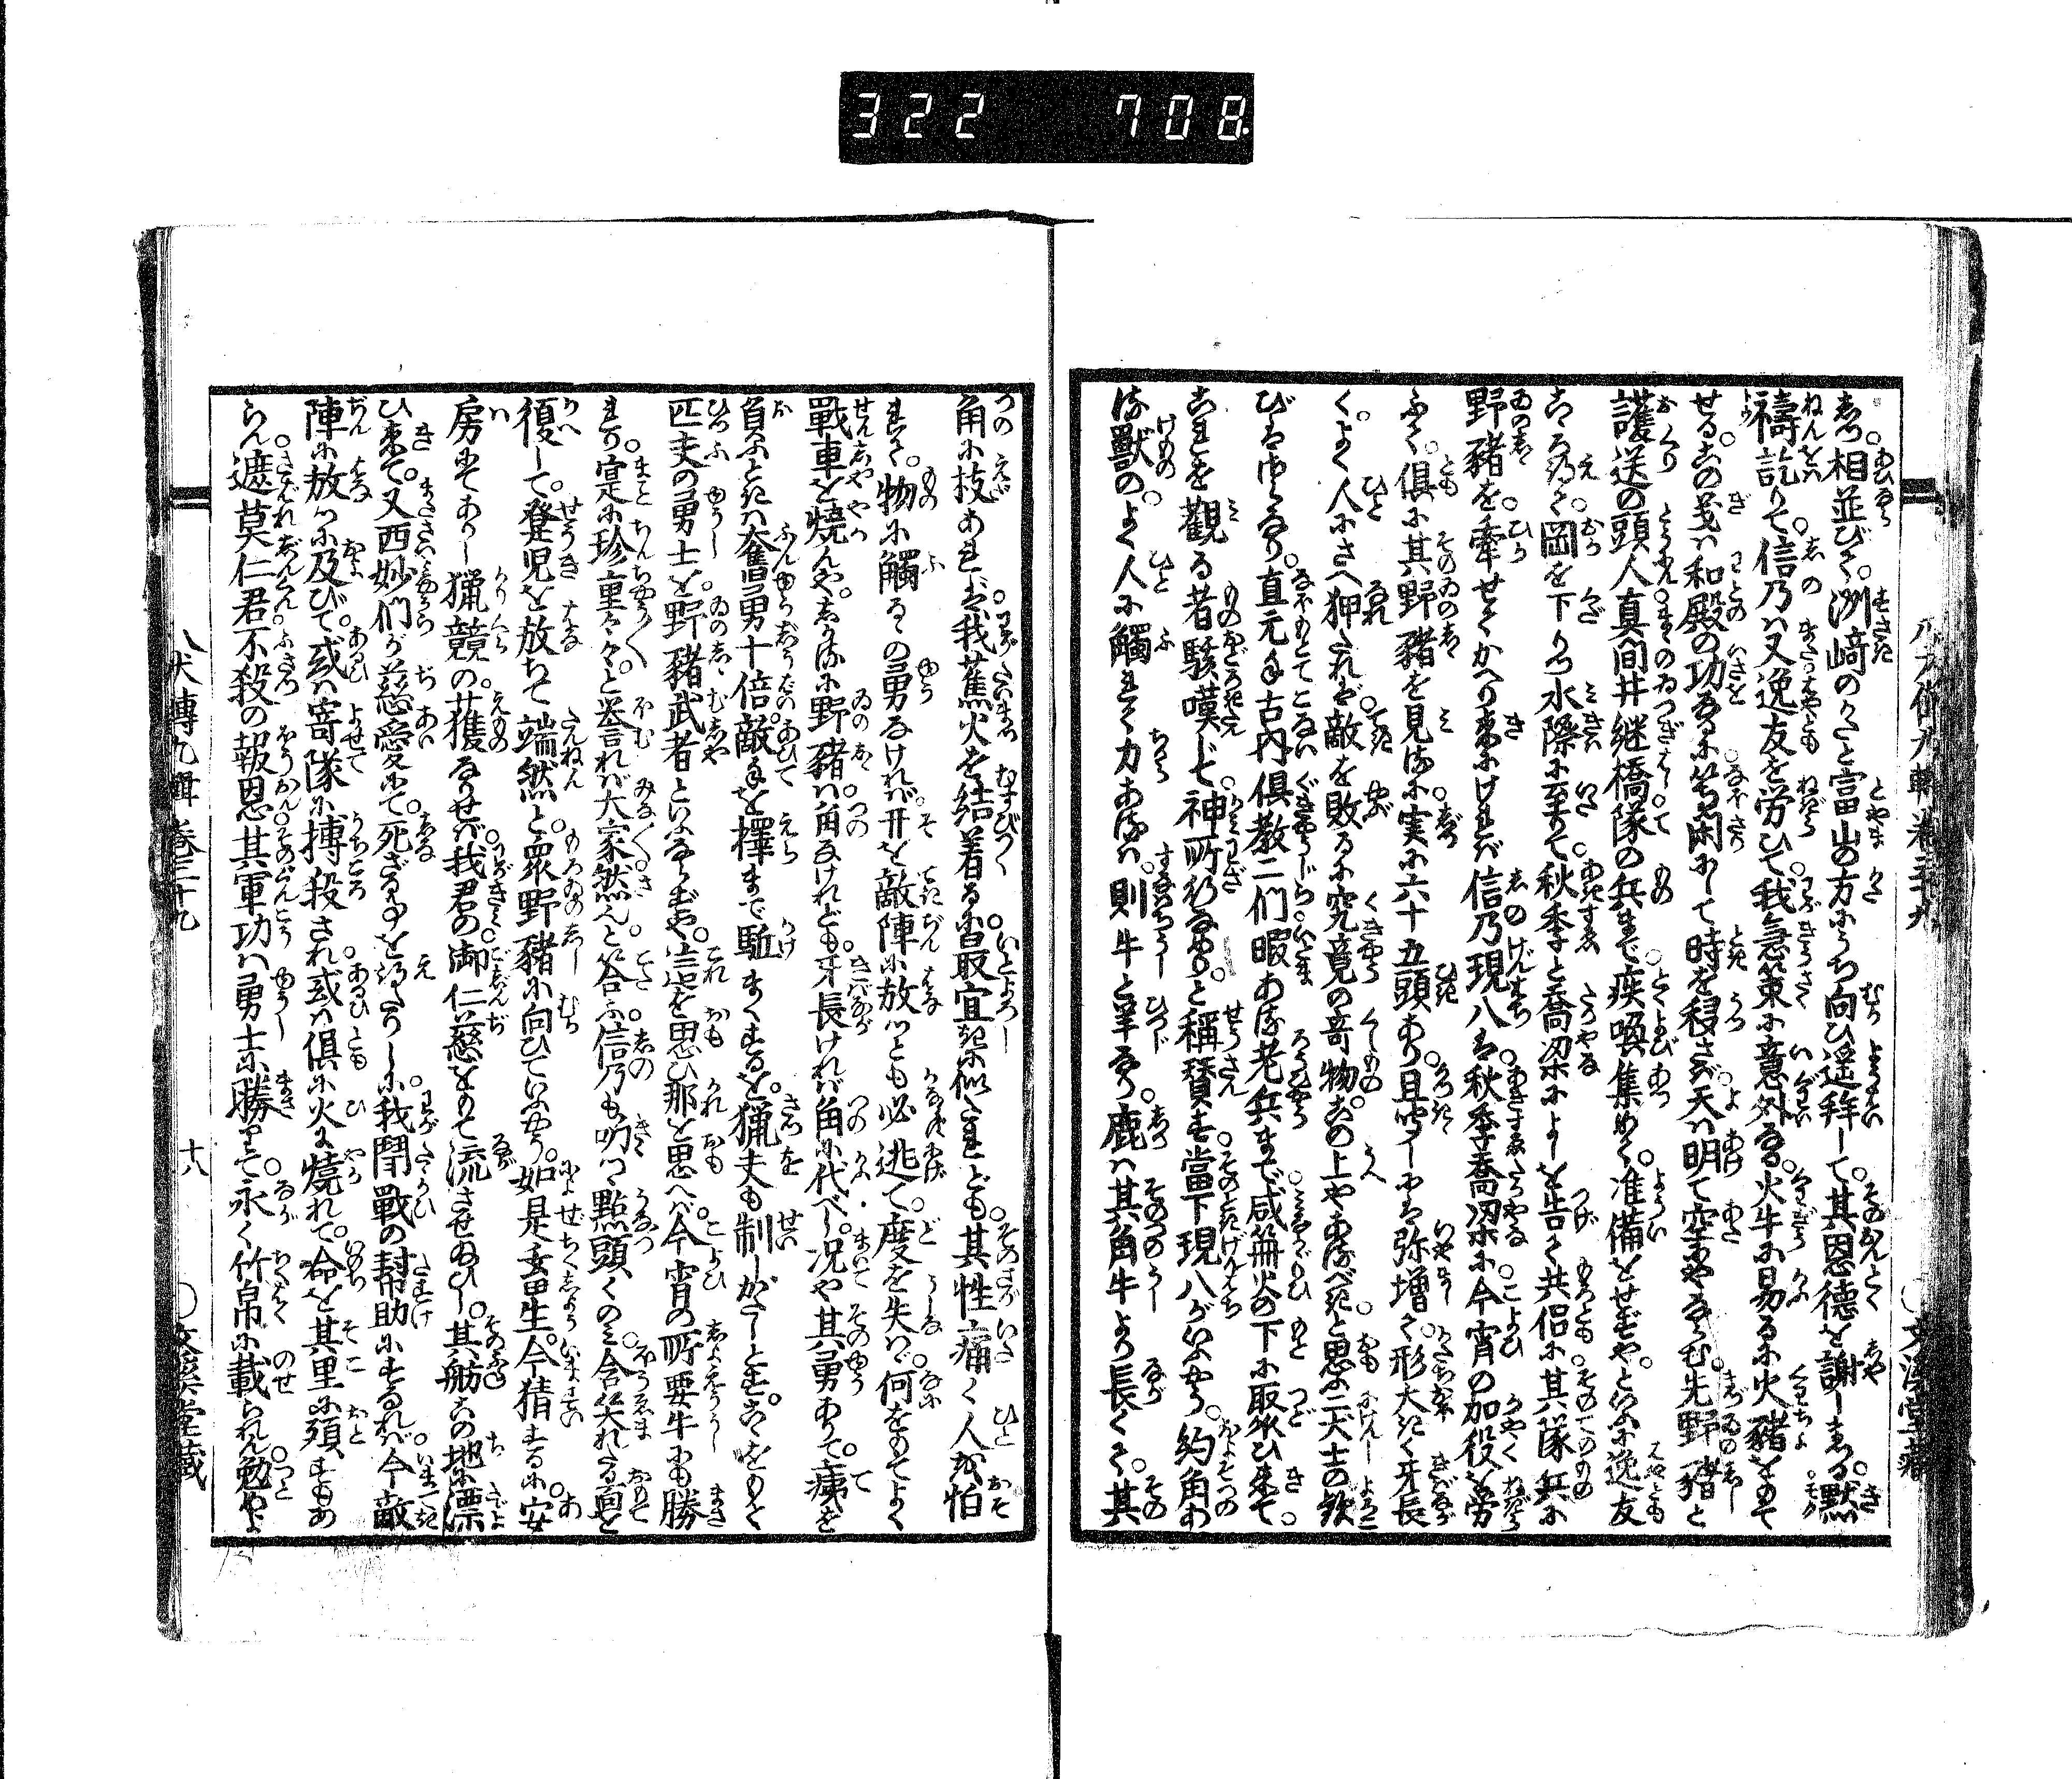 322 708
八犬傳九輯卷三十九
○文溪堂藏
しつ。相並びて。洲﨑のかたと富山の方にうち向ひ遥拜して。其恩德を謝しまつる。默
禱訖りて。信乃は又逸友を労ひて。我急策に意外なる。火牛に易るに火豬をもて
せる。この義は和殿の功なるに。等閑にして時を移さば。天は明て空にやならむ。先野豬と
護送の頭人。真間井継橋隊の兵まで。疾喚集めて。准備をせずや。といふに逸友
こゝろ得て。岡を下りつ水際に至りて。秋季と喬梁によしを告て。共侶に其隊兵に
野豬を。牽せてかへり来にければ。信乃現八は。秋季喬梁に。今宵の加役を労
ふて。俱に其野豬を見るに。実に六十五頭あり。且聞しには弥増て。形大きく牙長
く。よく人にさへ狎たれば。敵を敗るに究竟の奇物。この上やあるべきと思ふ二犬士の歓
びはいふもさらなり。直元手古内俱教二們。暇ある老兵まで。咸篝火の下に聚ひ来て。
これを觀る者駭嘆じ。神所行なめりと稱賛す。當下現八がいふやう。約角あ
る獸の。よく人に觸れて力あるは。則牛と羊なり。鹿は其角牛より長くて。其
角に枝あれば。我蕉火を結着るに。最宜きに似たれども。其性痛く人を怕
れて。物に觸るゝの勇なければ。开を敵陣に放つとも。必逃て度を失はゞ。何をもてよく
戰車を燒んや。しかるに野豬は。角なけれども。牙長ければ角に代べし。況や其勇ありて。痍を
負ふときは奮勇十倍。敵手を擇まで駈まくするを。獵夫も制しがたしとす。こをもて
匹夫の勇士を。野豬武者といふならずや。是を思ひ那を思へば。今宵の所要牛にも勝
れり。寔に珍重々々。と誉れば大家然也と。答ふ信乃も听つゝ點頭くのみ。含笑れたる面を
復して。登児を放ちて端然と。衆野豬に向ひていふやう。如是畜生。今猜するに。安
房にてありし獵競の。獲なりせば我君の。御仁慈をもて流させ給ひし。其舩この地に漂
ひ来て。又西妙們が慈愛にて。死ざる事を得たりしに。我鬪戰の幇助にせらるれば。今敵
陣に放つに及びて。或は寄隊に搏殺され。或は俱に火に燒れて。命を其里に殞すもあ
らん。遮莫仁君不殺の報恩。其軍功は勇士に勝りて。永く竹帛に載られん。勉めよ
八犬傳九輯卷三十九
十八
○文溪堂藏